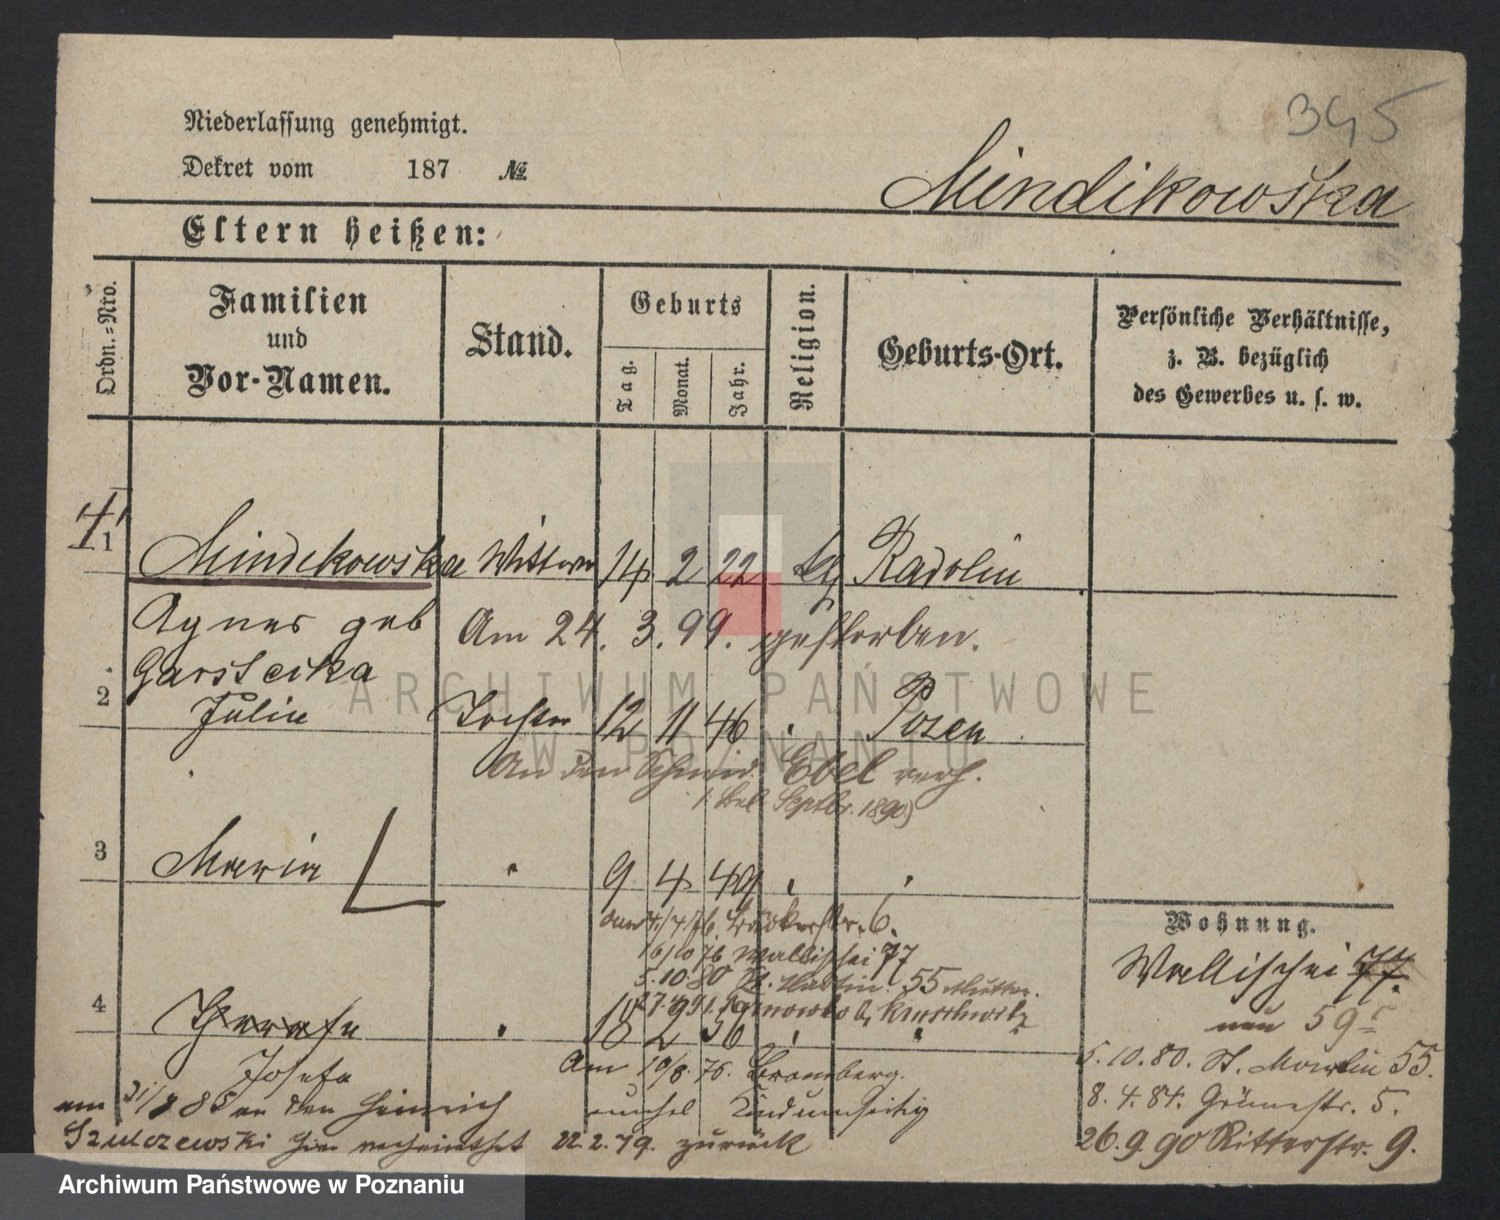 345
Niederlassung genehmigt.
Dekret vom 187 №
Mindikowska
Eltern heißen:
Ordn.-Nro.
Familien und Vor-Namen.
Stand.
Geburts
Tag.
Monat.
Jahr.
Religion.
Geburts-Ort.
Persönliche Verhältnisse,
z. B. bezüglich
des Gewerbes u. s. w.
1 Mindikowska Wittwe 14 2 22 Radolin
Agnes geb Am 24. 3. 99. gestorben.
Garstecka
2 Julia Tochter 12 11 46 Posen
An den Schmid Ebel verh.
Septbr. 1890)
3 Maria 9 4 49
6.
16/10 76 Wallischei 77
5.10.80 St. Martin 55 Mutter.
4 Therese 18 2 56
Josefa Am 19/8. 76. Bromberg.
am 31/8 85 an den Heinrich
Szulczewski hier verheirathet 22.2.79. zurück
Wohnung.
Wallischei 77.
neu 59
5.10.80. St. Martin 55.
8.4.84. Grünestr. 5.
26.9.90 Ritterstr. 9.
ARCHIWUM PAŃSTWOWE
W POZNANIU
Archiwum Państwowe w Poznaniu